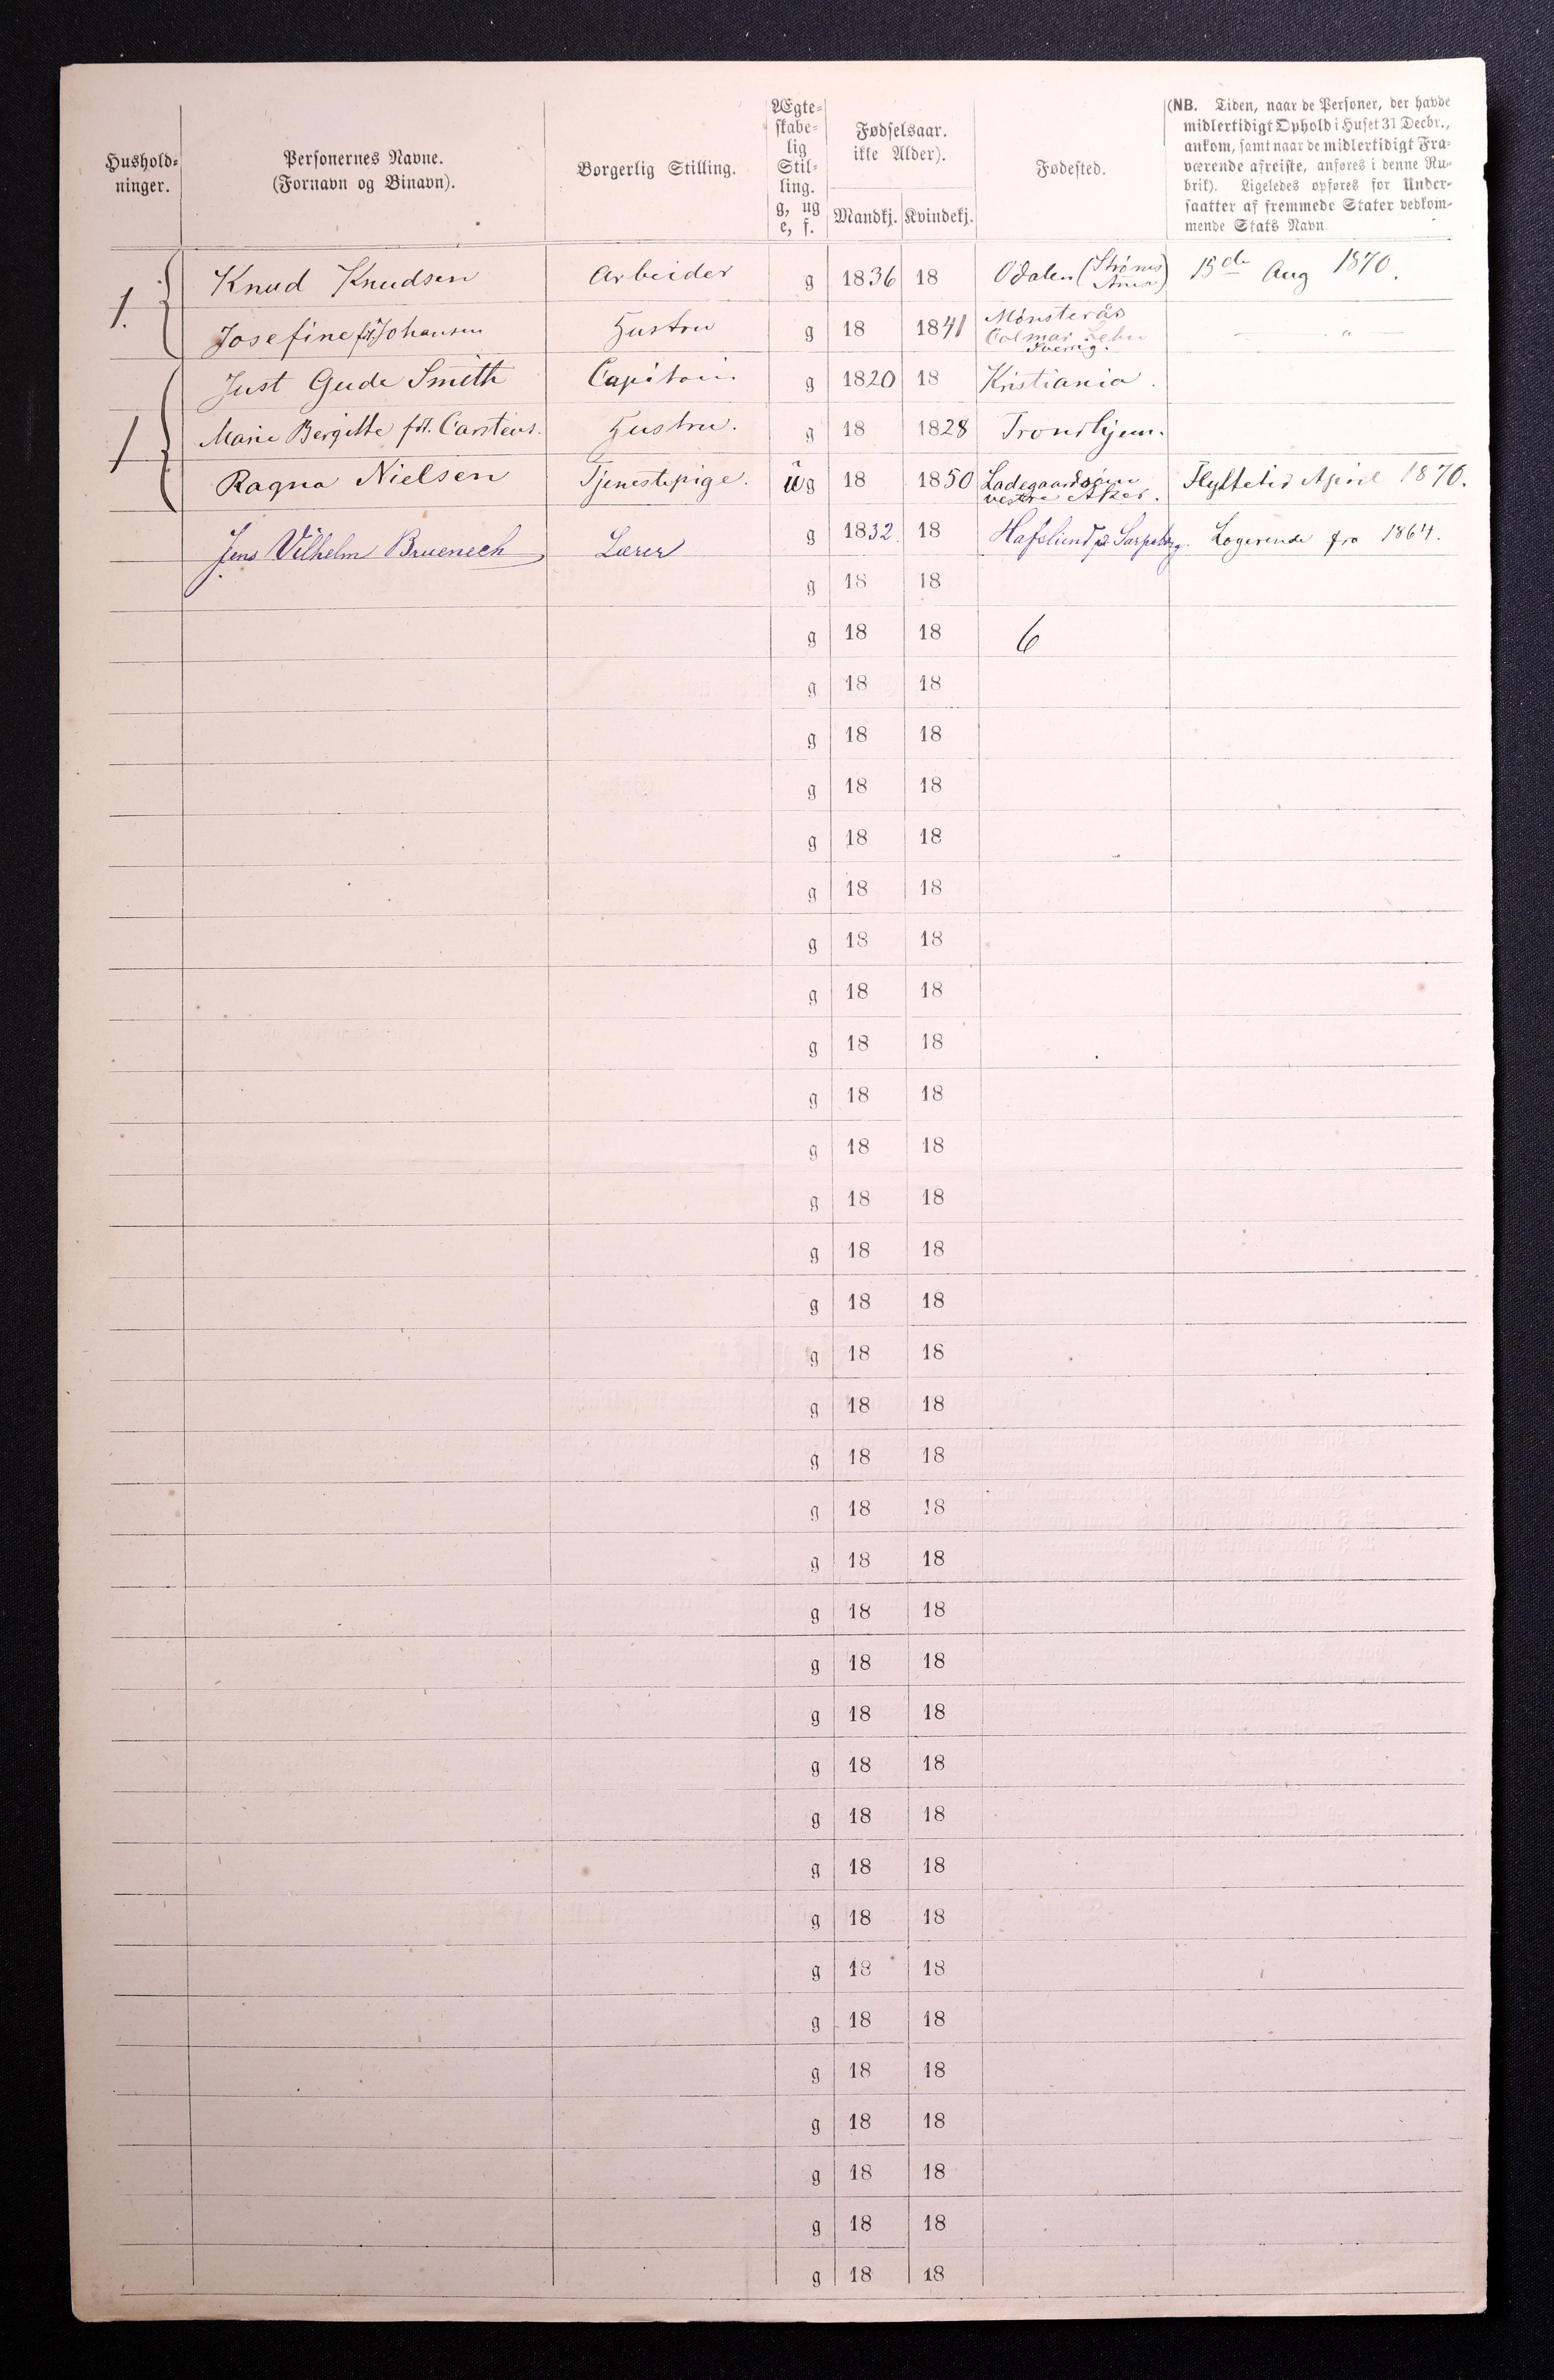 Hushold-
ninger.
Personernes Navne.
(Fornavn og Binavn).
Borgerlig Stilling.
Ægte-
skabe-
lig
Stil-
ling.
g, ug
e, f.
Fødselsaar.
ikke Alder).
Mandkj. Kvindekj.
Fødested.
(NB. Tiden, naar de Personer, der havde
midlertidigt Ophold i Huset 31 Decbr.,
ankom, samt naar de midlertidigt Fra-
værende afreiste, anføres i denne Ru-
brik). Ligeledes opføres for Under-
saatter af fremmede Stater vedkom-
mende Stats Navn.
1. Knud Knudsen Arbeider g 1836 18 Odalen (Strøms 15de Aug 1870.
Josefine fdt. Johansen Hustru g 18 1841 Mønsterås
Calmar Lehn
Sverrig. — " —
1 Just Gude Smith Capitain g 1820 18 Kristiania.
Marie Bergitte fdt. Carstens. Hustru. g 18 1828 Trondhjem.
Ragna Nielsen Tjenestepige. ug 18 1850 Ladegaardsøen
vestre Aker. Flyttetid April 1870.
Jens Vilhelm Bruenech Lærer g 1832. 18 Hafslund pr Sarpsborg. Logerende fra 1864.
g 18 18
g 18 18 6
g 18 18
g 18 18
g 18 18
g 18 18
g 18 18
g 18 18
g 18 18
g 18 18
g 18 18
g 18 18
g 18 18
g 18 18
g 18 18
g 18 18
g 18 18
g 18 18
g 18 18
g 18 18
g 18 18
g 18 18
g 18 18
g 18 18
g 18 18
g 18 18
g 18 18
g 18 18
g 18 18
g 18 18
g 18 18
g 18 18
g 18 18
g 18 18